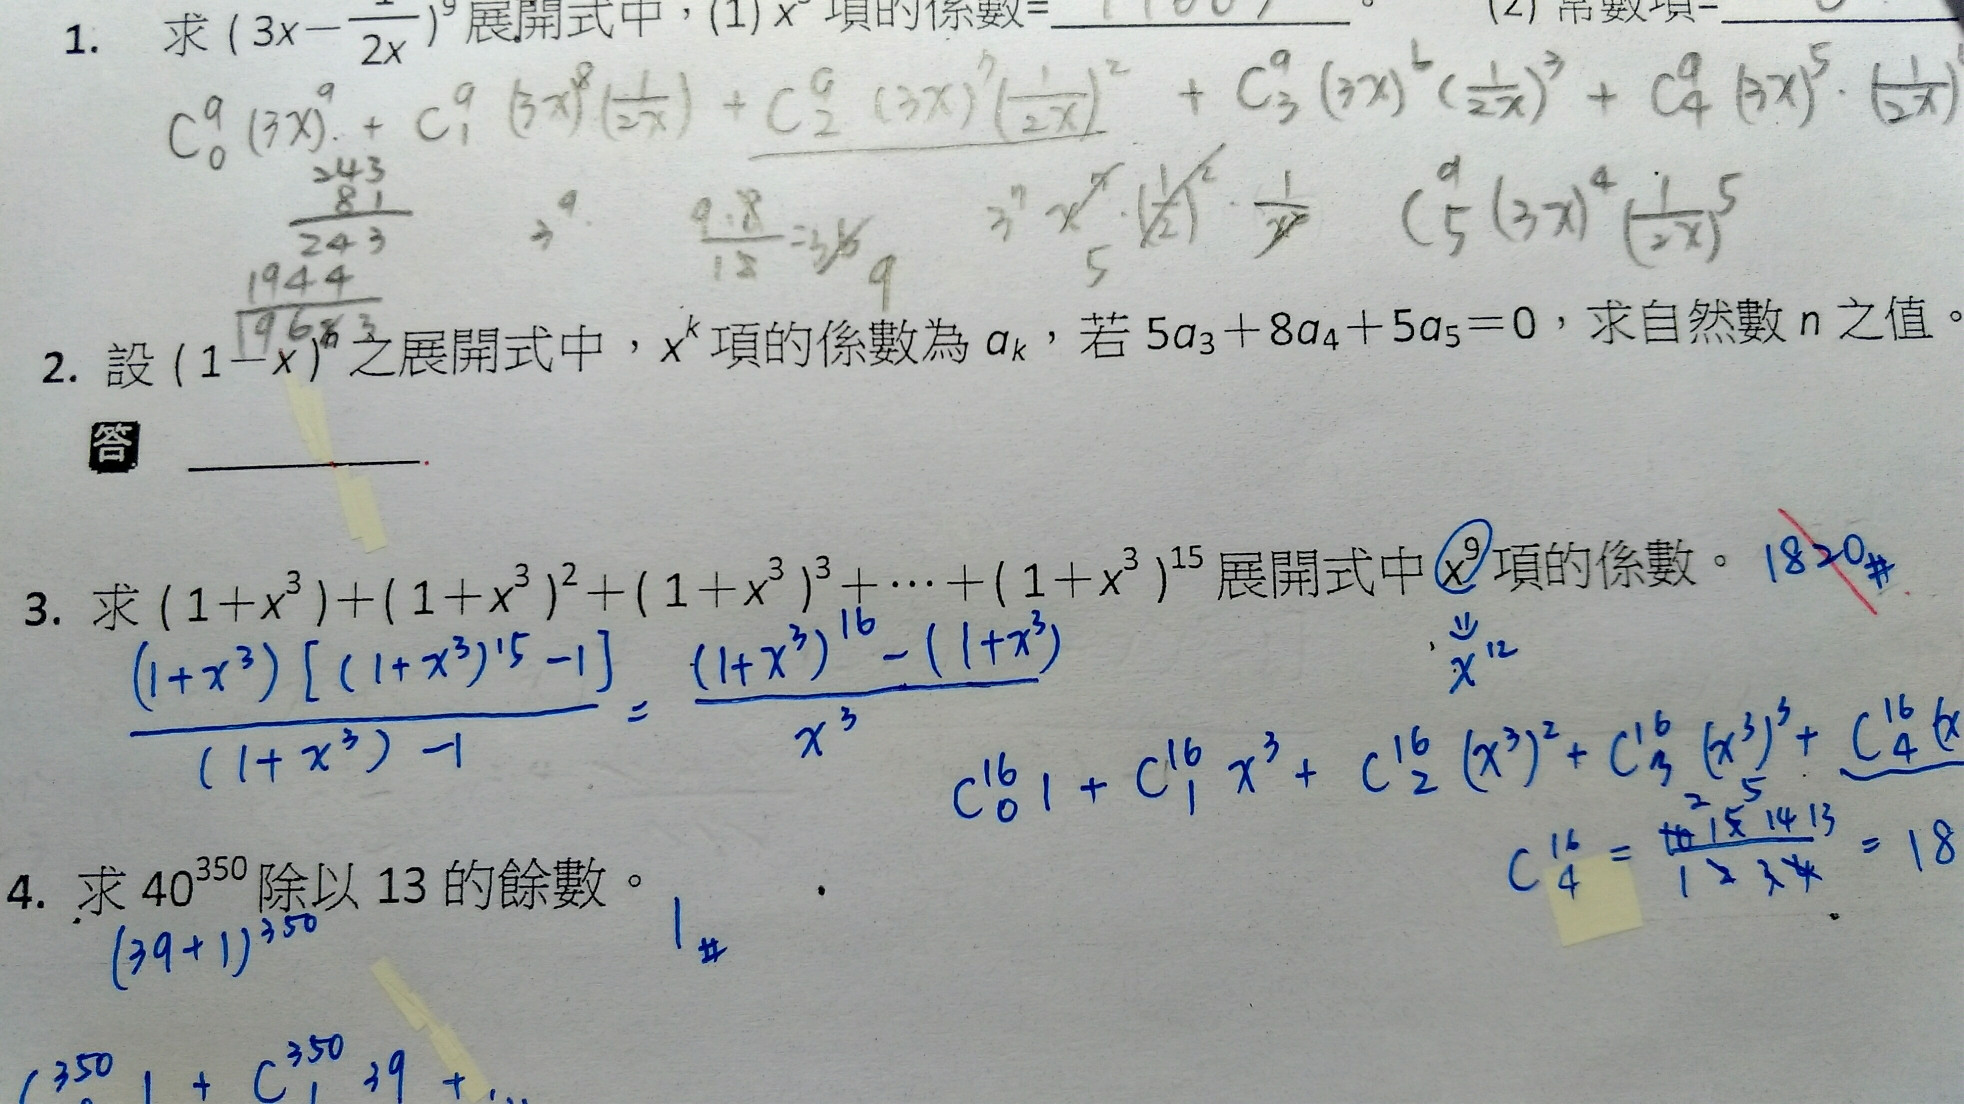 1. 求 ( 3x − 1/2x )⁹ 展開式中，(1) x 項的係數= 。 (2) 常數項=
C⁹₀ (3x)⁹ + C⁹₁ (3x)⁸ (1/2x) + C⁹₂ (3x)⁷ (1/2x)² + C⁹₃ (3x)⁶ (1/2x)³ + C⁹₄ (3x)⁵ · (1/2x)
243
81
243
1944
3⁹
3⁷ x⁷ · (1/2)² · 1/x²
5
C⁹₅ (3x)⁴ (1/2x)⁵
9
2. 設 ( 1 − x )ⁿ 之展開式中，xᵏ 項的係數為 aₖ，若 5a₃ + 8a₄ + 5a₅ = 0，求自然數 n 之值。
答
3. 求 ( 1 + x³ ) + ( 1 + x³ )² + ( 1 + x³ )³ + ⋯ + ( 1 + x³ )¹⁵ 展開式中 x⁹ 項的係數。 1820#
(1+x³) [ (1+x³)¹⁵ −1 ] / (1+x³) −1 = (1+x³)¹⁶ − (1+x³) / x³
x¹²
C¹⁶₀ 1 + C¹⁶₁ x³ + C¹⁶₂ (x³)² + C¹⁶₃ (x³)³ + C¹⁶₄ (x
C¹⁶₄ = 16 15 14 13 / 1 2 3 4 = 18
4. 求 40³⁵⁰ 除以 13 的餘數。 1#
(39+1)³⁵⁰
350 1 + C³⁵⁰₁ 39 + ...